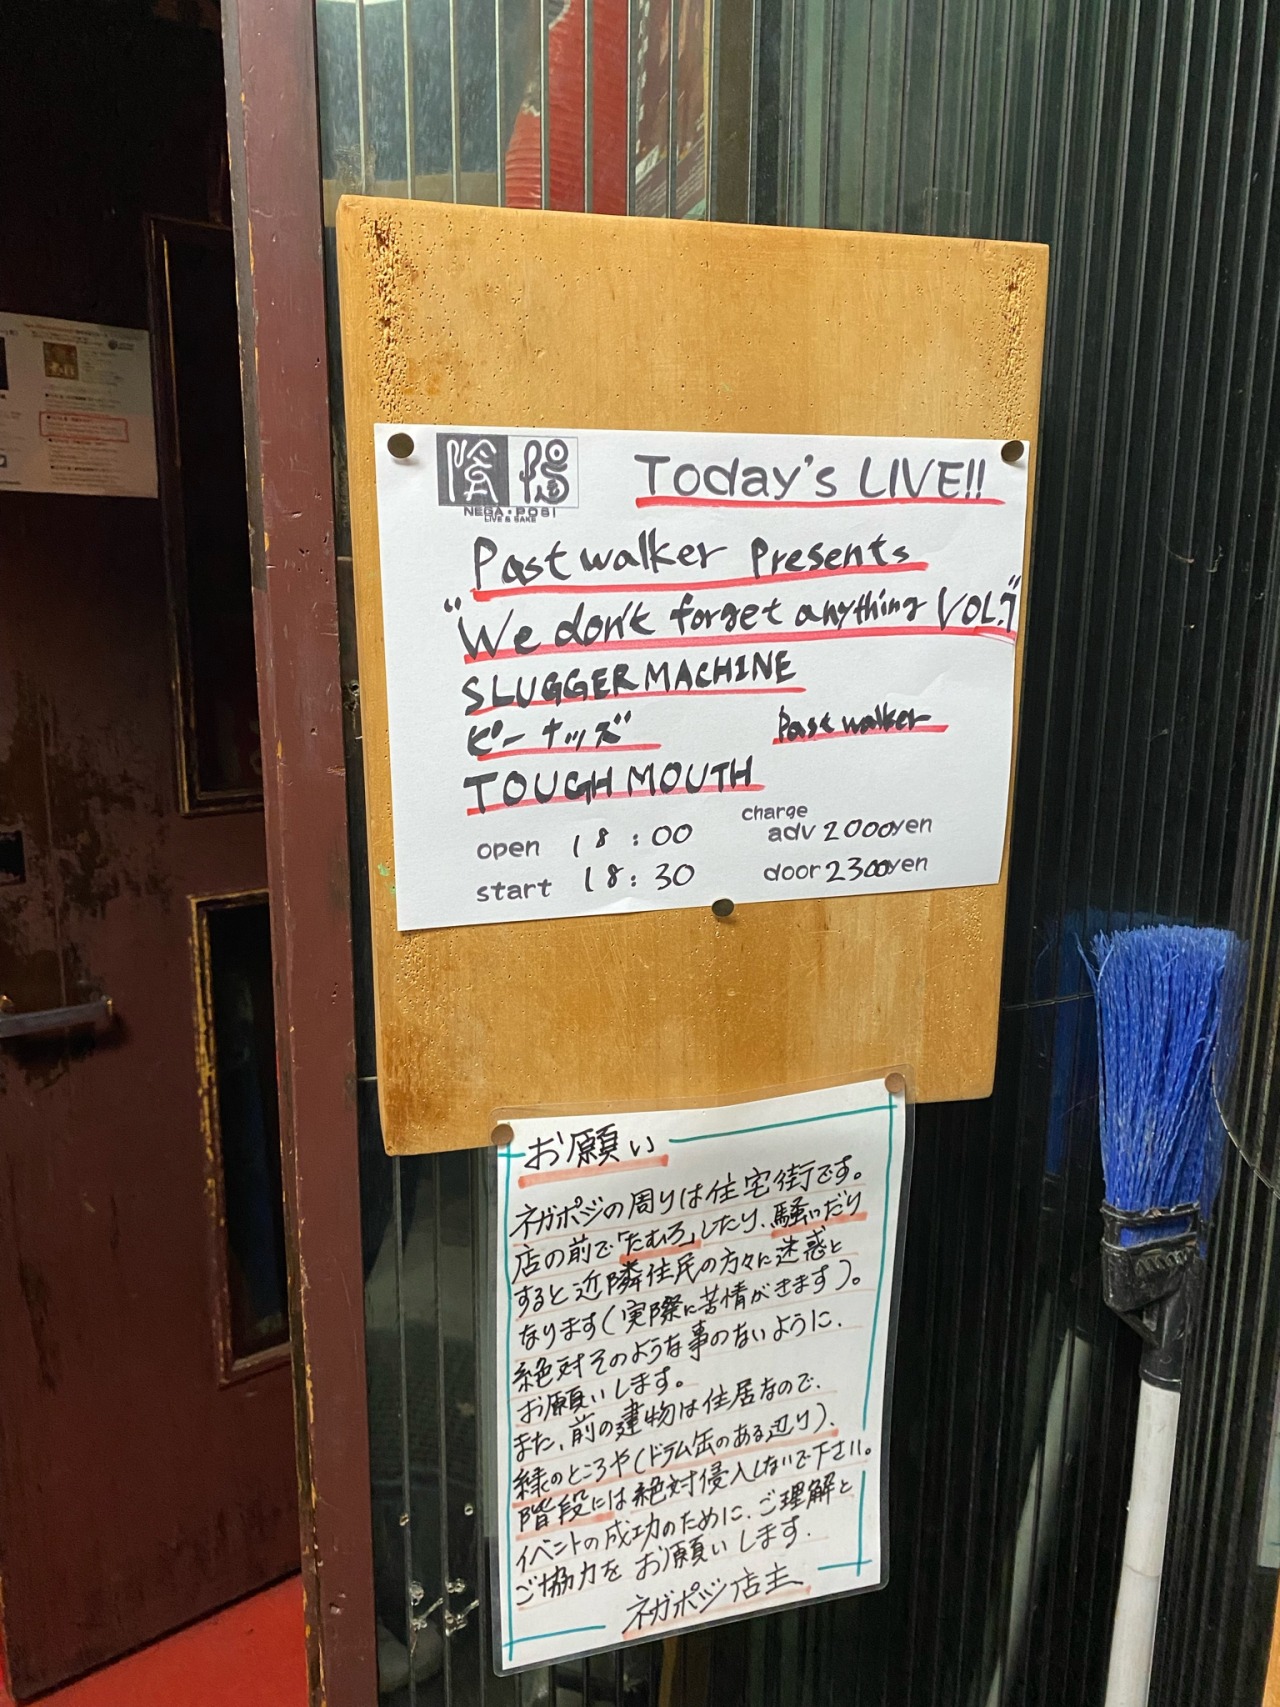 陰陽
NEGA・POSI
LIVE & SAKE
Today's LIVE!!
Past walker Presents
"We don't forget anything VOL.7"
SLUGGER MACHINE
ピーナッズ
Past walker
TOUGH MOUTH
open 18:00
charge
adv 2000yen
start 18:30
door 2300yen
お願い
ネガポジの周りは住宅街です。
店の前で「たむろ」したり、騒いだり
すると近隣住民の方々に迷惑と
なります(実際に苦情がきます)。
絶対そのような事のないように、
お願いします。
また、前の建物は住居なので、
緑のところや(ドラム缶のある辺り)、
階段には絶対侵入しないで下さい。
イベントの成功のために、ご理解と
ご協力をお願いします.
ネガポジ店主